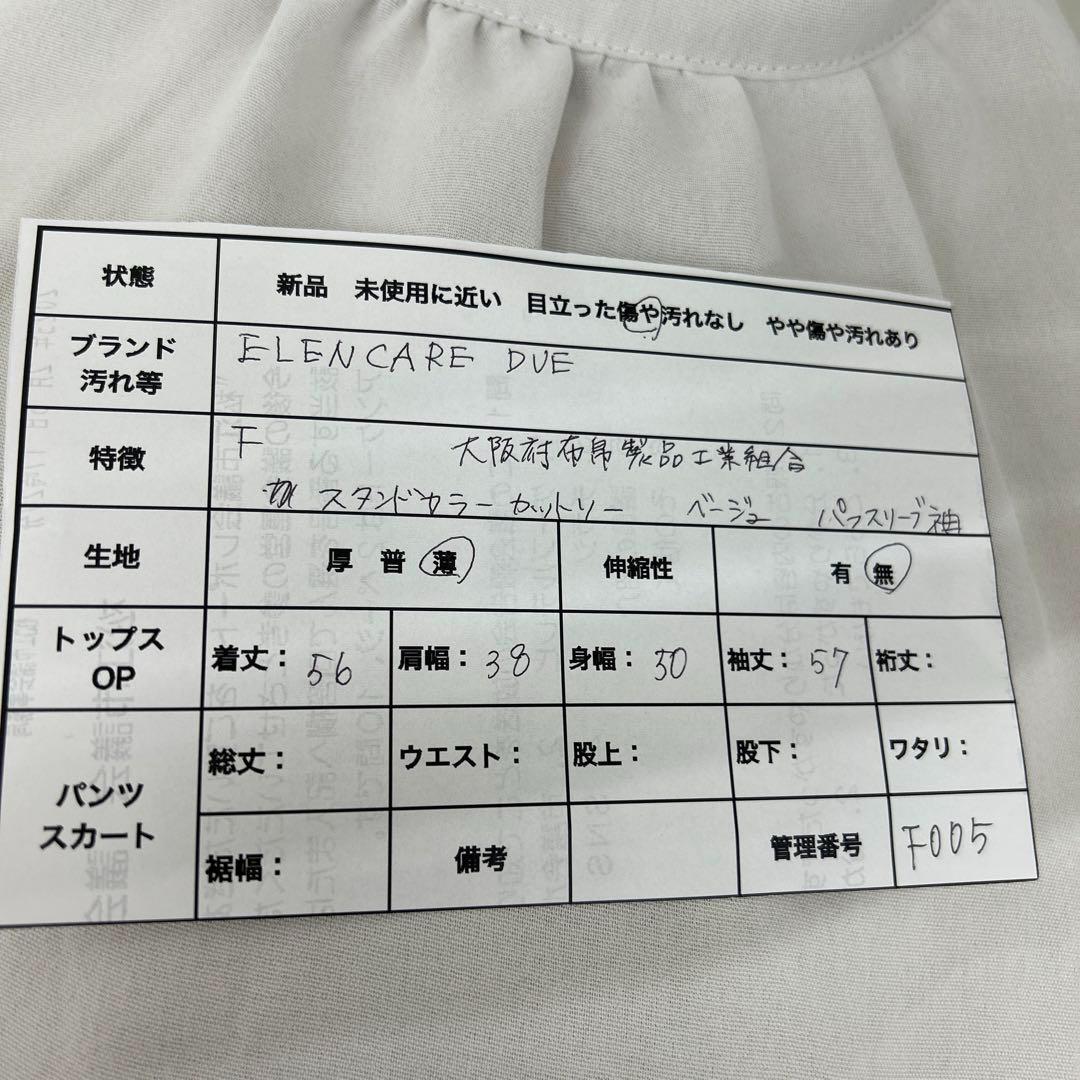 状態 新品 未使用に近い 目立った傷や汚れなし やや傷や汚れあり
ブランド 汚れ等 ELENCARE DUE
特徴 F 大阪府布帛製品工業組合
スタンドカラー カットソー ベージュ パフスリーブ袖
生地 厚 普 薄 伸縮性 有 無
トップス OP 着丈: 56 肩幅: 38 身幅: 50 袖丈: 57 裄丈:
パンツ スカート 総丈: ウエスト: 股上: 股下: ワタリ:
裾幅: 備考 管理番号 F005